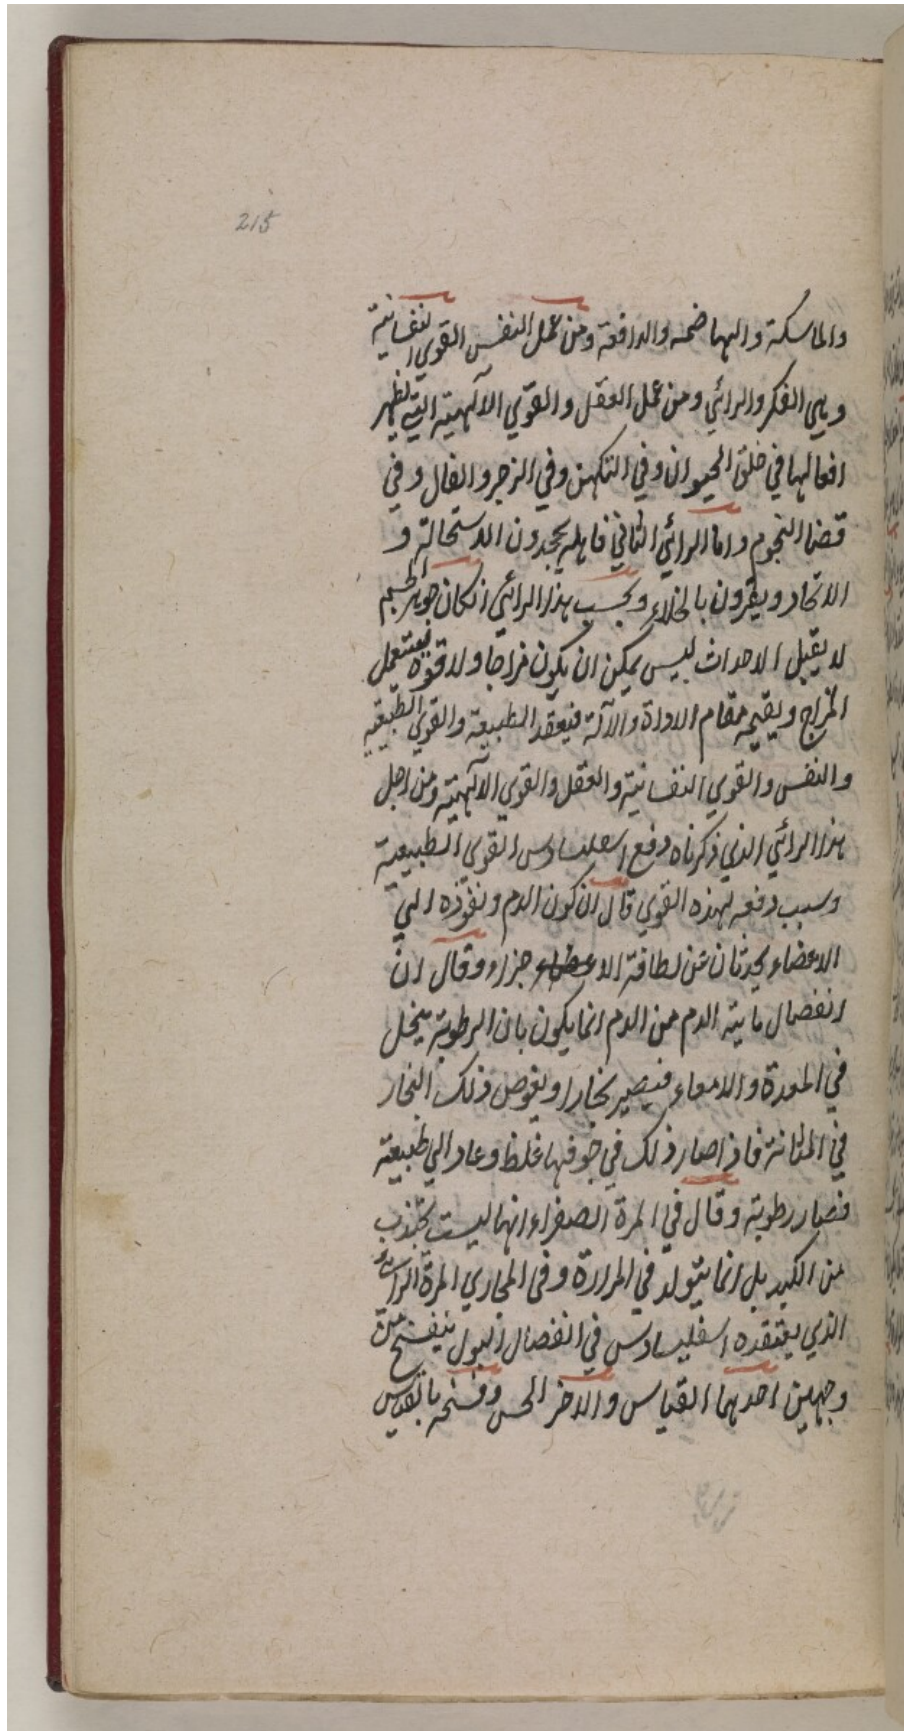 215
والماسكة والهاضمه والدافعة ومن عمل النفس القوي النفسانية
وهي الفكر والرائي ومن عمل العقل والقوي الآلهية التي تظهر
افعالها في خلق الحيوان وفي التكهن وفي الزجر والفال وفي
قضا النجوم واما الرائي الثاني فاهله يجحدون الاستحالة و
الاتحاد ويقرون بالخلاء وبحسب هذا الرائي انكان جوهر الجسم
لا يقبل الاحداث ليس يمكن ان يكون مزاجا ولا قوة فيستعمل
المزاج ويقيمه مقام الاداة والآلة فيفقد الطبيعة والقوي الطبيعية
والنفس والقوي النفسانية والعقل والقوي الآلهية ومن اجل
هذا الرائي الذي ذكرناه دفع اسقلسادس القوي الطبيعية
وسبب دفعه لهذه القوي قال ان كون الدم ونفوذه الي
الاعضاء يحدثان عن لطافة الاجزاء وقال ان
انفصال مايية الدم من الدم انما يكون بان الرطوبة ينحل
في المعدة والامعاء فيصير بخارا ويغوص ذلك البخار
في المثانة فاذا صار ذلك في جوفها غلظ وعاد الي طبيعته
فصار رطوبة وقال في المرة الصفراء انها ليست تجتذب
من الكبد بل انما يتولد في المرارة وفي المجاري المرة
الذي يعتقده اسقليسادس في انفصال البول ينفسخ من
وجهين احدهما القياس والاخر الحس وفسخه بالقياس